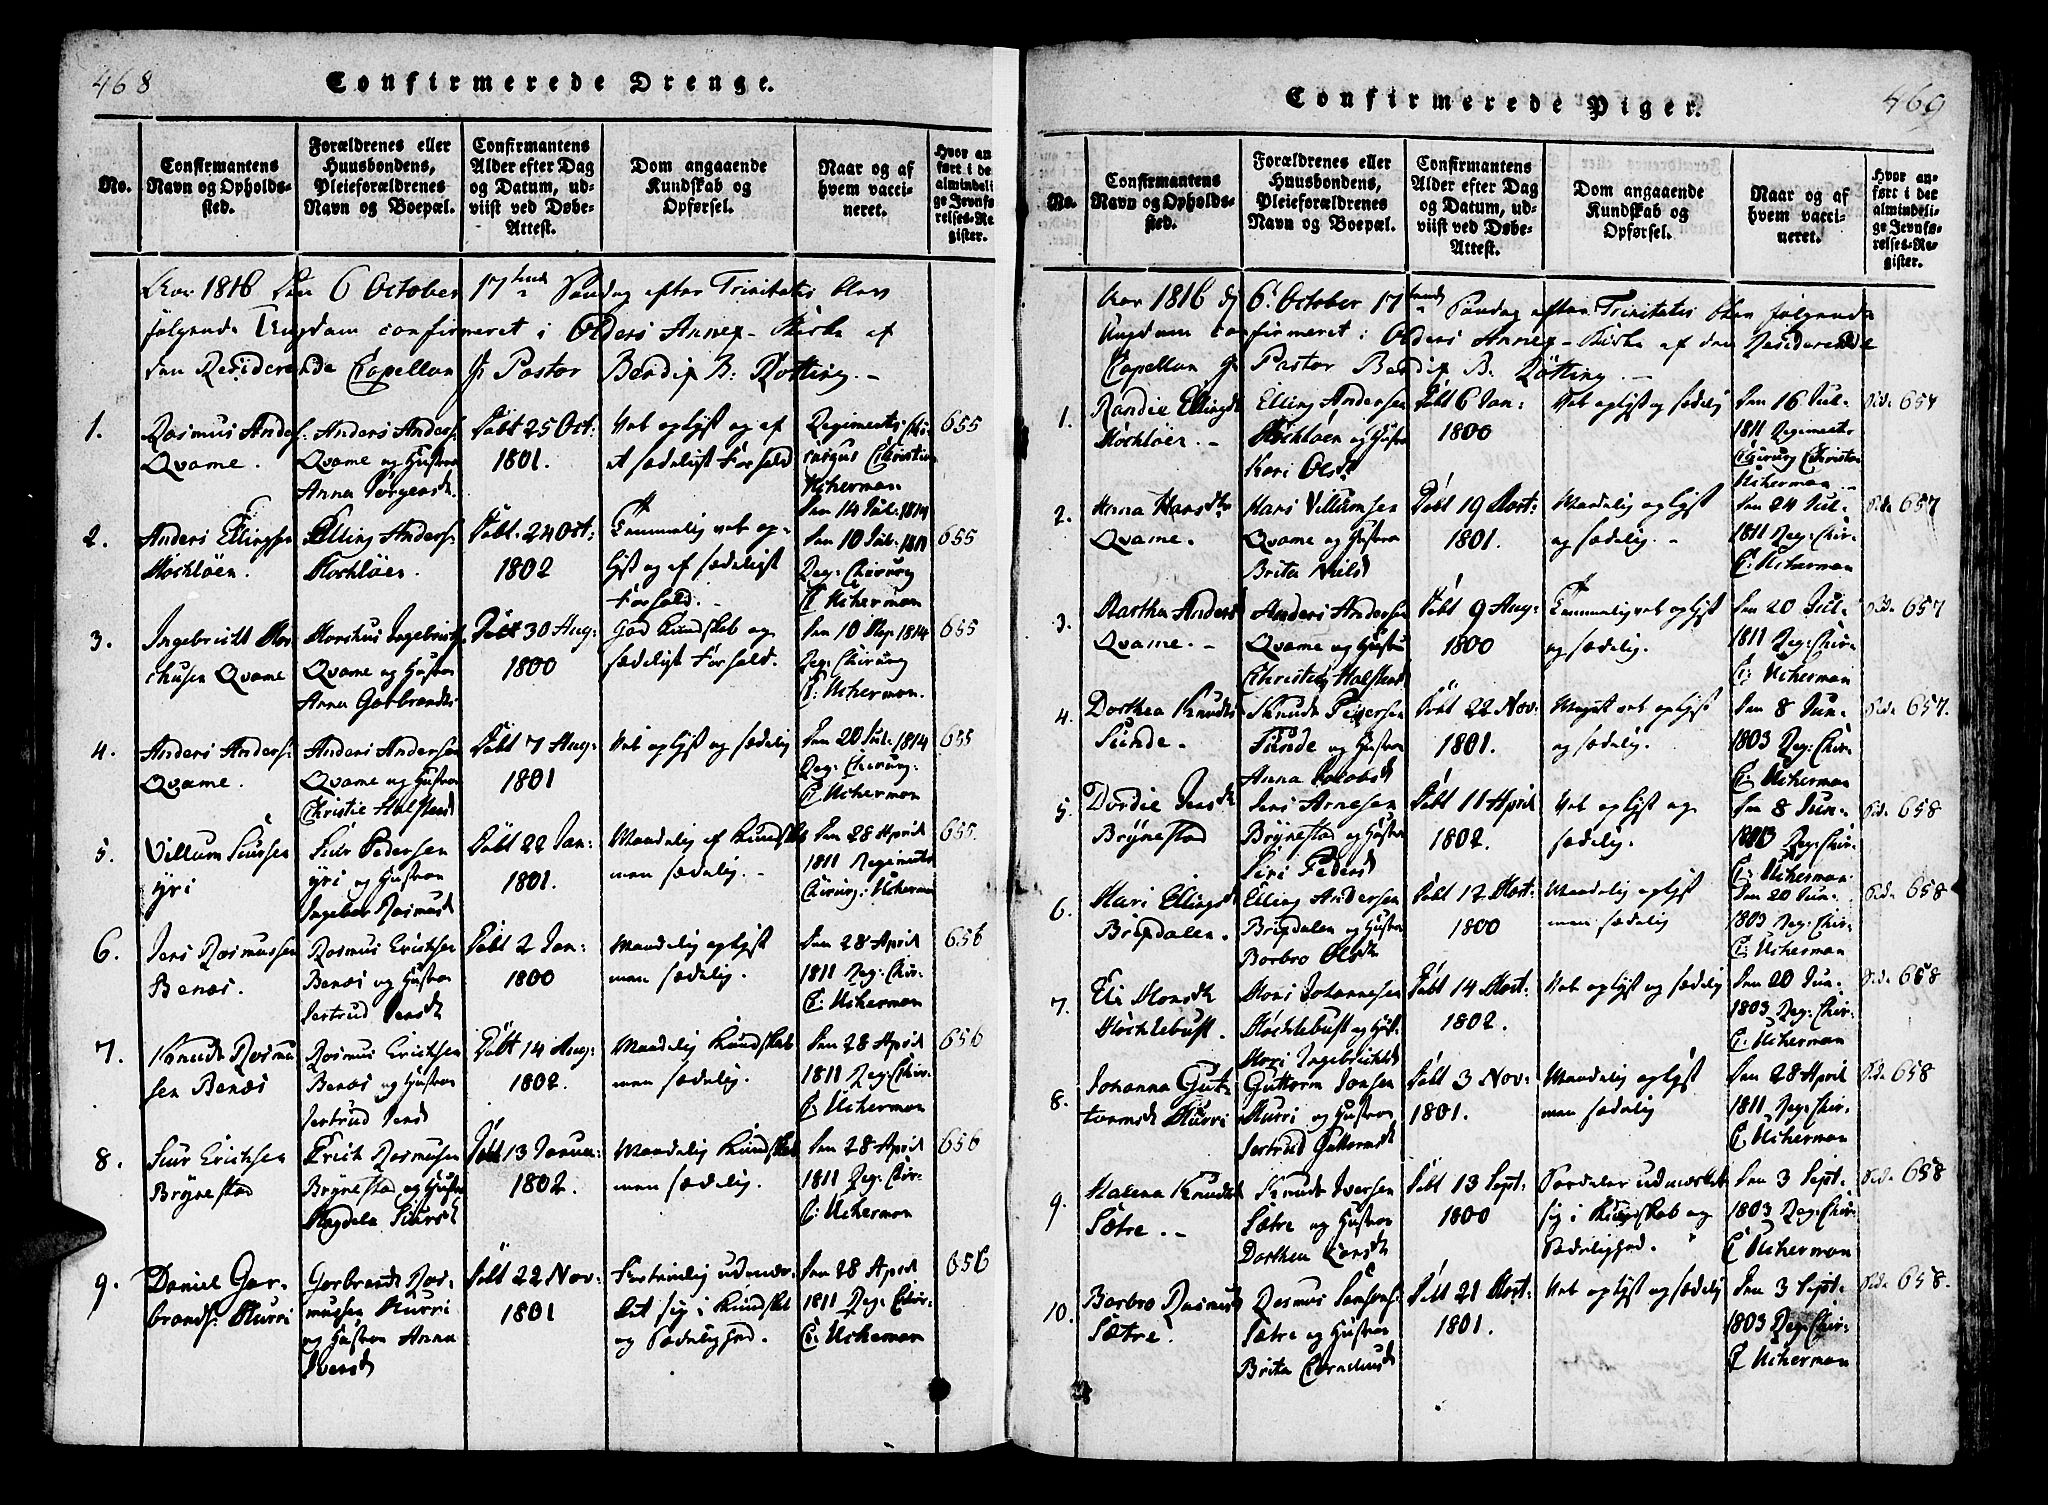 468
Confirmerede Drenge.
No.
Confirmantens
Navn og Opholds-
sted.
Forældrenes eller
Huusbondens,
Pleieforældrenes
Navn og Boepæl.
Confirmantens
Alder efter Dag
og Datum, ud-
viist ved Døbe-
Attest.
Dom angaaende
Kundskab og
Opførsel.
Naar og af
hvem vacci-
neret.
Hvor an-
ført i det
almindeli-
ge Jevnfø-
relses-Re-
gister.
Aar 1816 den 6 October 17tende Søndag efter Trinitatis blev
følgende Ungdom confirmeret i Olders Annex-Kirke af
den Residerende Capellan Hr Pastor Bendix B: Røtting.
1.
Rasmus Anders:
Qvame.
Anders Anders:
Qvame og Hustroe
Anna Jørgensd.
Døbt 25 Oct:
1801.
Vel oplyst og af
et sædeligt Forhold
Regiments-Chi-
rurgus Christian
Ucherman
den 14 Jul: 1814
655
2.
Anders Ellingsen
Mochløen.
Elling Anders:
Mochløen.
Døbt 24 Oct:
1802
Temmelig vel op-
lyst og af sædeligt
Forhold.
den 10 Jul: 1811
Reg: Chirurg
C: Ucherman
655
3.
Ingebricht Mar-
chusen Qvame
Marchus Ingebrichts:
Qvame og Hustroe
Anna Garbrandsd
Døbt 30 Aug:
1800
God Kundskab og
sædeligt Forhold.
den 10 Sep. 1814
Reg: Chirurg
C: Ucherman.
655
4.
Anders Anders:
Qvame.
Anders Andersen
Qvame og Hustroe
Christie Halstensd
Døbt 7 Aug:
1801
Vel oplyst og sædelig
den 20 Jul: 1814
Reg: Chirurg:
C: Ucherman
655
5.
Villum Siursen
Yri
Siur Pedersen
Yri og Hustroe
Ingebor Rasmusd
Døbt 22 Jan:
1801.
Maadelig af Kundskab
men sædelig.
den 28 April
1811 Regiments
Chirurg: Ucherman
655.
6.
Jens Rasmussen
Benæs.
Rasmus Ericksen
Benæs og Hustroe
Jertrud Jensd
Døbt 2 Jan:
1800
Maadelig oplyst
men sædelig.
den 28 April
1811 Reg: Chir-
C: Ucherman
656
7.
Knud Rasmu
sen Benæs
Rasmus Ericksen
Benæs og Hustroe
Jertrud Jensd
Døbt 14 Aug:
1802.
Maadelig Kundskab
men sædelig.
den 28 April
1811 Reg: Chir-
C: Ucherman
656
8.
Siur Ericksen
Brynestad
Erich Rasmusen
Brynestad og Hustroe
Magdela Siursd
Døbt 13 Januar
1802.
Maadelig Kundskab
men sædelig.
den 28 April
1811 Reg: Chir-
C: Ucherman
656
9.
Daniel Gar-
brands: Murri
Garbrand Ras-
mussen Murri
og Hustroe Anna
Iversd
Døbt 22 Nov:
1801
Fortrinlig udmær-
ket sig i Kundskab
og Sædelighed.
den 28 April
1811 Reg: Chir-
C: Ucherman
656
469
Confirmerede Piger.
No.
Confirmantens
Navn og Opholds-
sted.
Forældrenes eller
Huusbondens,
Pleieforældrenes
Navn og Boepæl.
Confirmantens
Alder efter Dag
og Datum, ud-
viist ved Døbe-
Attest.
Dom angaaende
Kundskab og
Opførsel.
Naar og af
hvem vacci-
neret.
Hvor an-
ført i det
almindeli-
ge Jevnfø-
relses-Re-
gister.
Aar 1816 d 6. October 17tende Søndag efter Trinitatis blev følgende
Ungdom confirmeret i Olders Annex-Kirke af den Residerende
Capellan Hr Pastor Bendix B. Røtting.
1.
Randie Ellingsd
Mochløen.
Elling Andersen
Mochløen og Hustroe
Kari Olsd
Døbt 6 Jan:
1800
Vel oplyst og sædelig
den 16 Jul-
1811 Regiments
Chirurg Christian
Ucherman
Side 657
2.
Anna Hansd
Qvame.
Hans Villumsen
Qvame og Hustroe
Brita Nielsd
Døbt 19 Mart:
1801.
Maadelig oplyst
og sædelig.
den 24 Jul-
1811 Reg: Chir-
C: Ucherman
Side 657
3.
Marthe Anders
Qvame.
Anders Andersen
Qvame og Hustroe
Christie Halstensd
Døbt 9 Aug:
1800
Temmelig vel oplyst
og sædelig.
den 20 Jul-
1811 Reg: Chir-
C: Ucherman
Side 657
4.
Dorthea Knudsd
Sunde.
Knud Pedersen
Sunde og Hustroe
Anna Jacobsd
Døbt 22 Nov:
1801.
Meget vel oplyst
og sædelig.
den 8 Jun-
1803 Reg: Chir
C: Ucherman
Side 657.
5.
Dordie Jensd
Brynestad
Jens Arnesen
Brynestad og Hustroe
Siri Pedersd
Døbt 11 April
1802.
Vel oplyst og
sædelig.
den 8 Jun-
1803 Reg: Chir-
C: Ucherman.
Side 658
6.
Mari Ellingsd
Brigdalen.
Elling Andersen
Brigdalen og Hustroe
Barbro Olsd
Døbt 12 Mart:
1800
Maadelig oplyst
men sædelig
den 20 Jun-
1803 Reg: Chir-
C: Ucherman
Side 658
7.
Eli Monsd
Mochlebust.
Mons Johannesen
Mochlebust og Hust-
Mari Ingebrichtsd
Døbt 14 Mart:
1802.
Vel oplyst og sædelig
den 20 Jun-
1803 Reg: Chir-
C: Ucherman
Side 658
8.
Johanna Gut-
tormsd Murri
Guttorm Jonsen
Murri og Hustroe
Jertrud Guttormsd
Døbt 3 Nov-
1801.
Maadelig oplyst
men sædelig
den 28 April
1811 Reg: Chir-
C: Ucherman
Side 658
9.
Malena Knudsd
Sætre.
Knud Iversen
Sætre og Hustroe
Dorthea Larsd
Døbt 13 Sept:
1800
Særdeles udmærket
sig i Kundskab og
Sædelighed.
den 3 Sept:
1803 Reg: Chir-
C: Ucherman
Side 658
10.
Barbro Rasmusd
Sætre.
Rasmus
Sætre og Hustroe
Brita Corneliusd
Døbt 21 Mart:
1801.
Vel oplyst og sædelig
den 3 Sept:
1803 Reg: Chir-
C: Ucherman
Side 658.